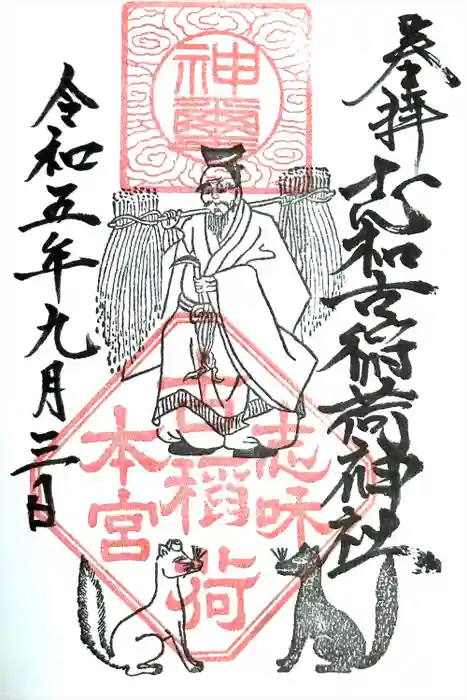 奉拝
志和古稲荷神社
神璽
志和
古稲荷
本宮
令和五年九月三日